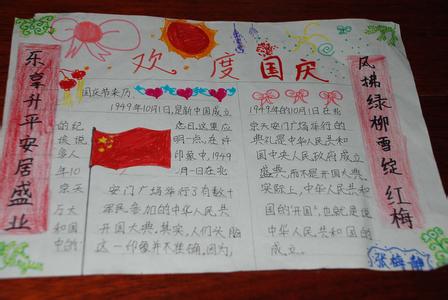 欢度国庆
乐享升平安居盛业
风拂绿柳雪绽红梅
国庆节来历
1949年10月1日,是新中国成立
的纪 念日。这里应
该说 明一点,在许
多人 印象中,1949
年10 月一日在北
京天 安门广场举行了有数十
万大 军民参加的中华人民共
和国 开国大典,其实,人们头脑
中的 这一印象并不准确,因为,
1949年的10月1日在北
京天安门广场举行的
典礼是中华人民共和
国中央人民政府成立
盛典,而不是开国大典。
实际上,中华人民共和
国的“开国”,也就是说
中华人民共和国的
成立。